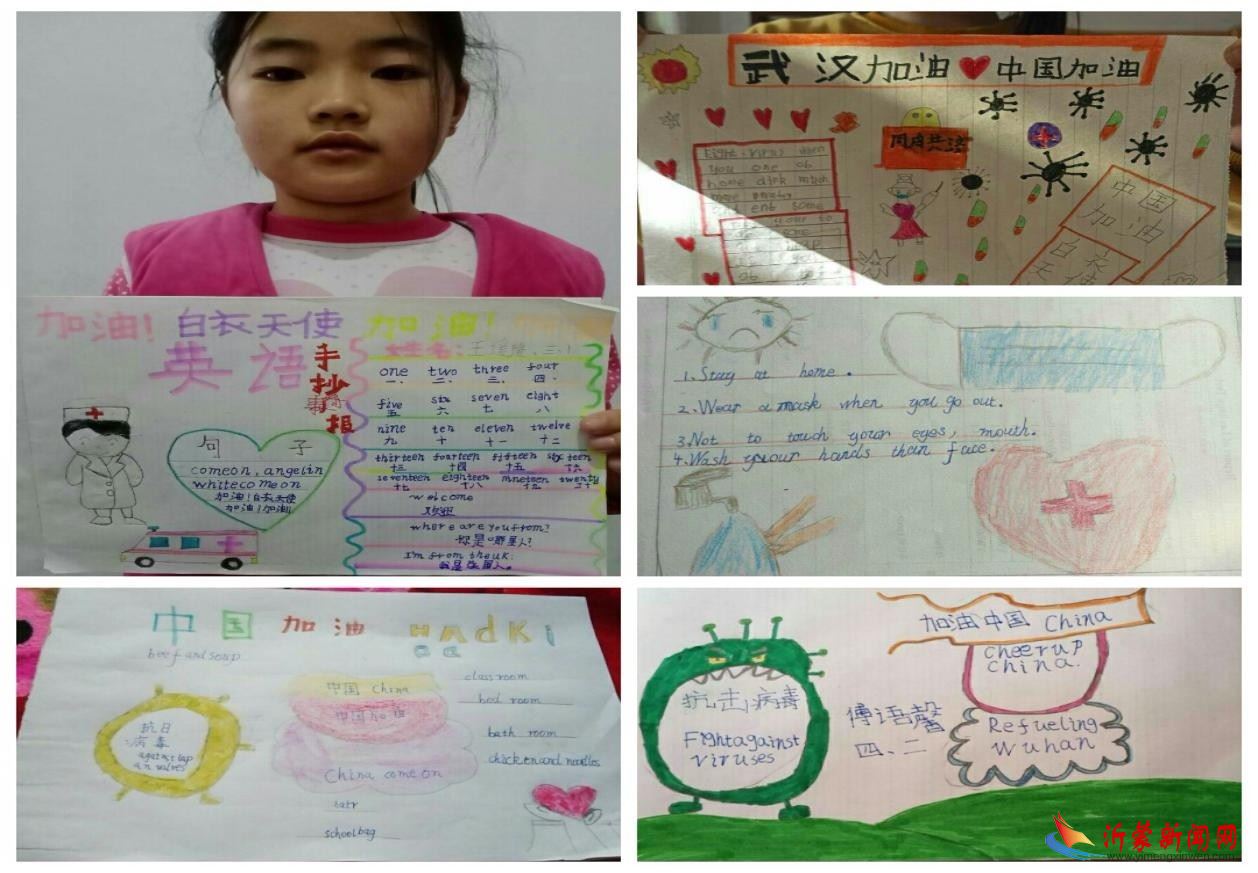 加油! 白衣天使 加油!
英语
手抄报
姓名:
one two three four
一、 二、 三、 四、
five six seven eight
五 六 七 八
nine ten eleven twelve
九 十 十一 十二
thirteen fourteen fifteen sixteen
十三 十四 十五 十六
seventeen eighteen nineteen twenty
十七 十八 十九 二十
welcome
欢迎
where are you from?
你是哪里人?
I'm from the uk.
我是英国人。
句子
comeon, angelin
whitecomeon
加油!白衣天使
加油!加油!!
武汉加油 中国加油
fight virus when
you one ob
home dirk much
中国
加油
白衣
天使
1. Stay at home.
2. Wear a mask when you go out.
3. Not to touch your eyes, mouth.
4. Wash your hands than face.
中国 加油
beef and soup
抗日
病毒
中国 China
中国加油
China come on
class room
bed room
bath room
chicken and noodles
schoolbag
抗击病毒
Fight against
viruses
傅语馨
四、二
加油中国 China
cheer up
china.
Refueling
wuhan
沂蒙新闻网
www.yimengxinwen.com